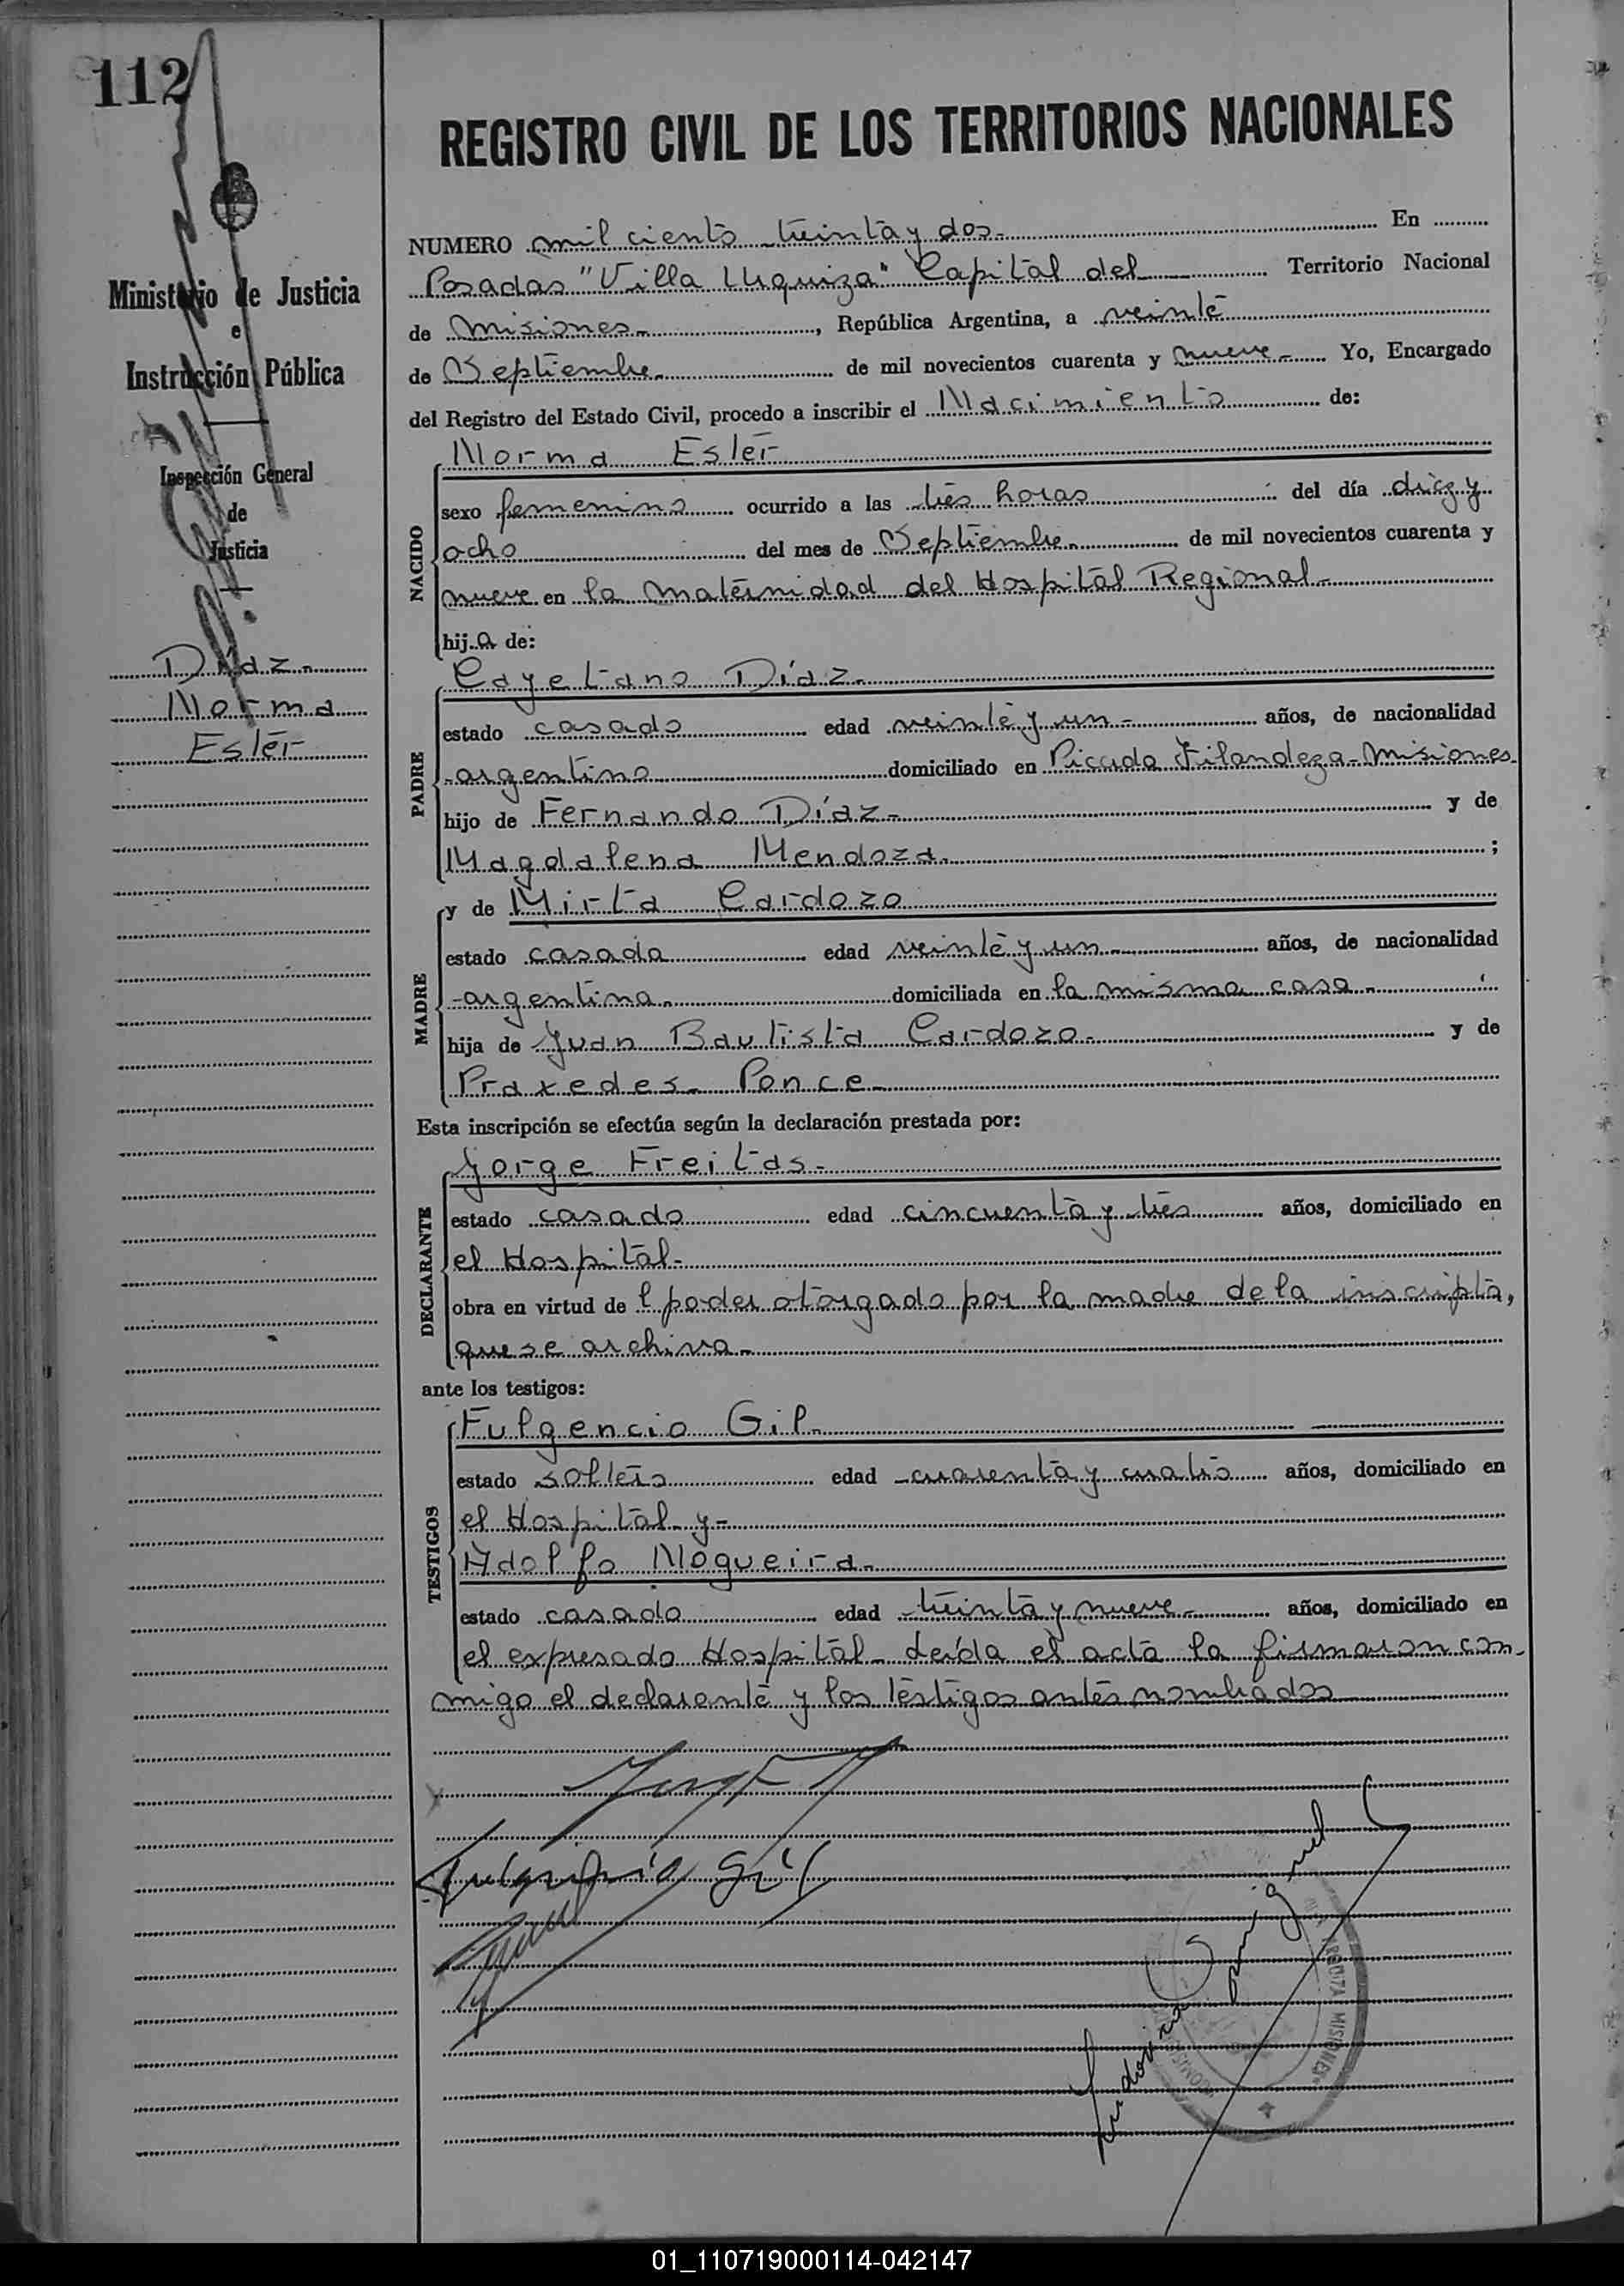 112
REGISTRO CIVIL DE LOS TERRITORIOS NACIONALES
Ministerio de Justicia
e
Instrucción Pública
Inspección General
de
Justicia
Díaz.
Norma
Ester
NUMERO mil ciento treinta y dos. En
Posadas "Villa Urquiza" Capital del Territorio Nacional
de Misiones. , República Argentina, a veinte
de Septiembre. de mil novecientos cuarenta y nueve Yo, Encargado
del Registro del Estado Civil, procedo a inscribir el Nacimiento de:
Norma Ester
NACIDO
sexo femenino ocurrido a las tres horas del día diez y
ocho del mes de Septiembre. de mil novecientos cuarenta y
nueve en la maternidad del Hospital Regional
hija de:
Cayetano Díaz.
PADRE
estado casado edad veinte y un años, de nacionalidad
argentino domiciliado en Picada Filandeza-Misiones.
hijo de Fernando Díaz y de
Magdalena Mendoza. ;
y de Mirta Cardozo
MADRE
estado casada edad veinte y un años, de nacionalidad
argentina. domiciliada en la misma casa
hija de Juan Bautista Cardozo y de
Praxedes Ponce
Esta inscripción se efectúa según la declaración prestada por:
Jorge Freitas
DECLARANTE
estado casado edad cincuenta y tres años, domiciliado en
el Hospital.
obra en virtud de l poder otorgado por la madre de la inscripta,
que se archiva
ante los testigos:
Fulgencio Gil
TESTIGOS
estado soltero edad cuarenta y cuatro años, domiciliado en
el Hospital y
Adolfo Nogueira
estado casado edad treinta y nueve años, domiciliado en
el expresado Hospital. Leída el acta la firmaron con
migo el declarante y los testigos antes nombrados
Fulgencio Gil
MISIONES
01_110719000114-042147